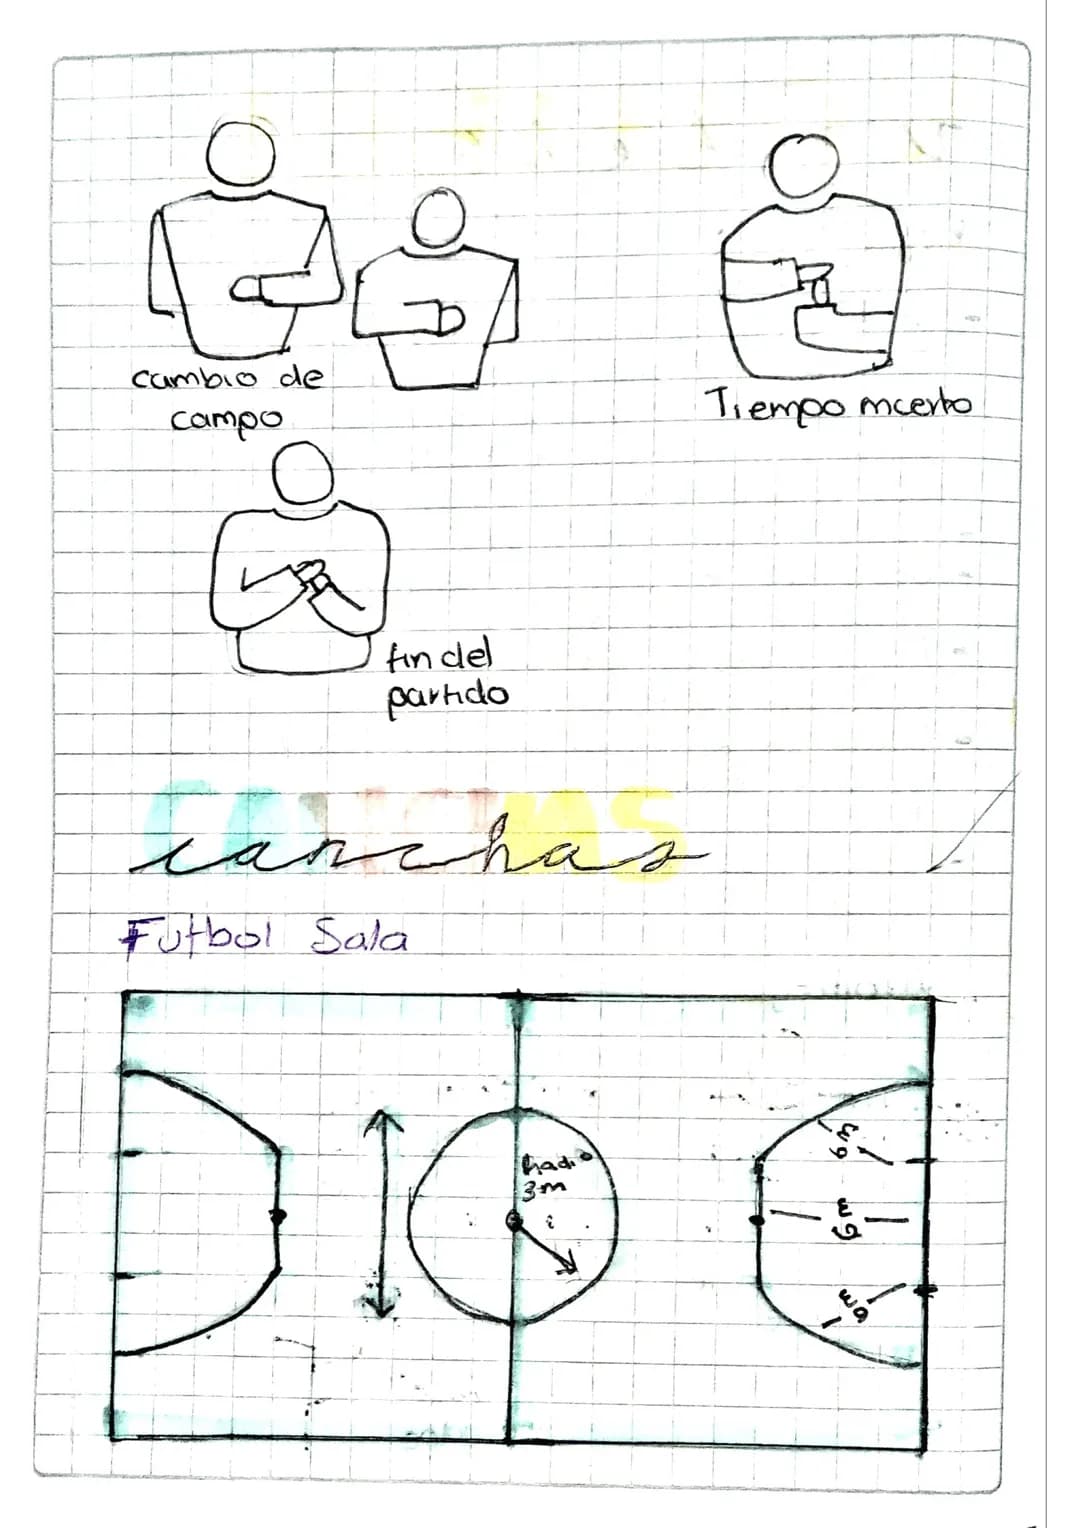 cambio de
campo
Tiempo mcerto
fin del
partido
canchas
Futbol Sala
Radio
3m
6m
6m
6m